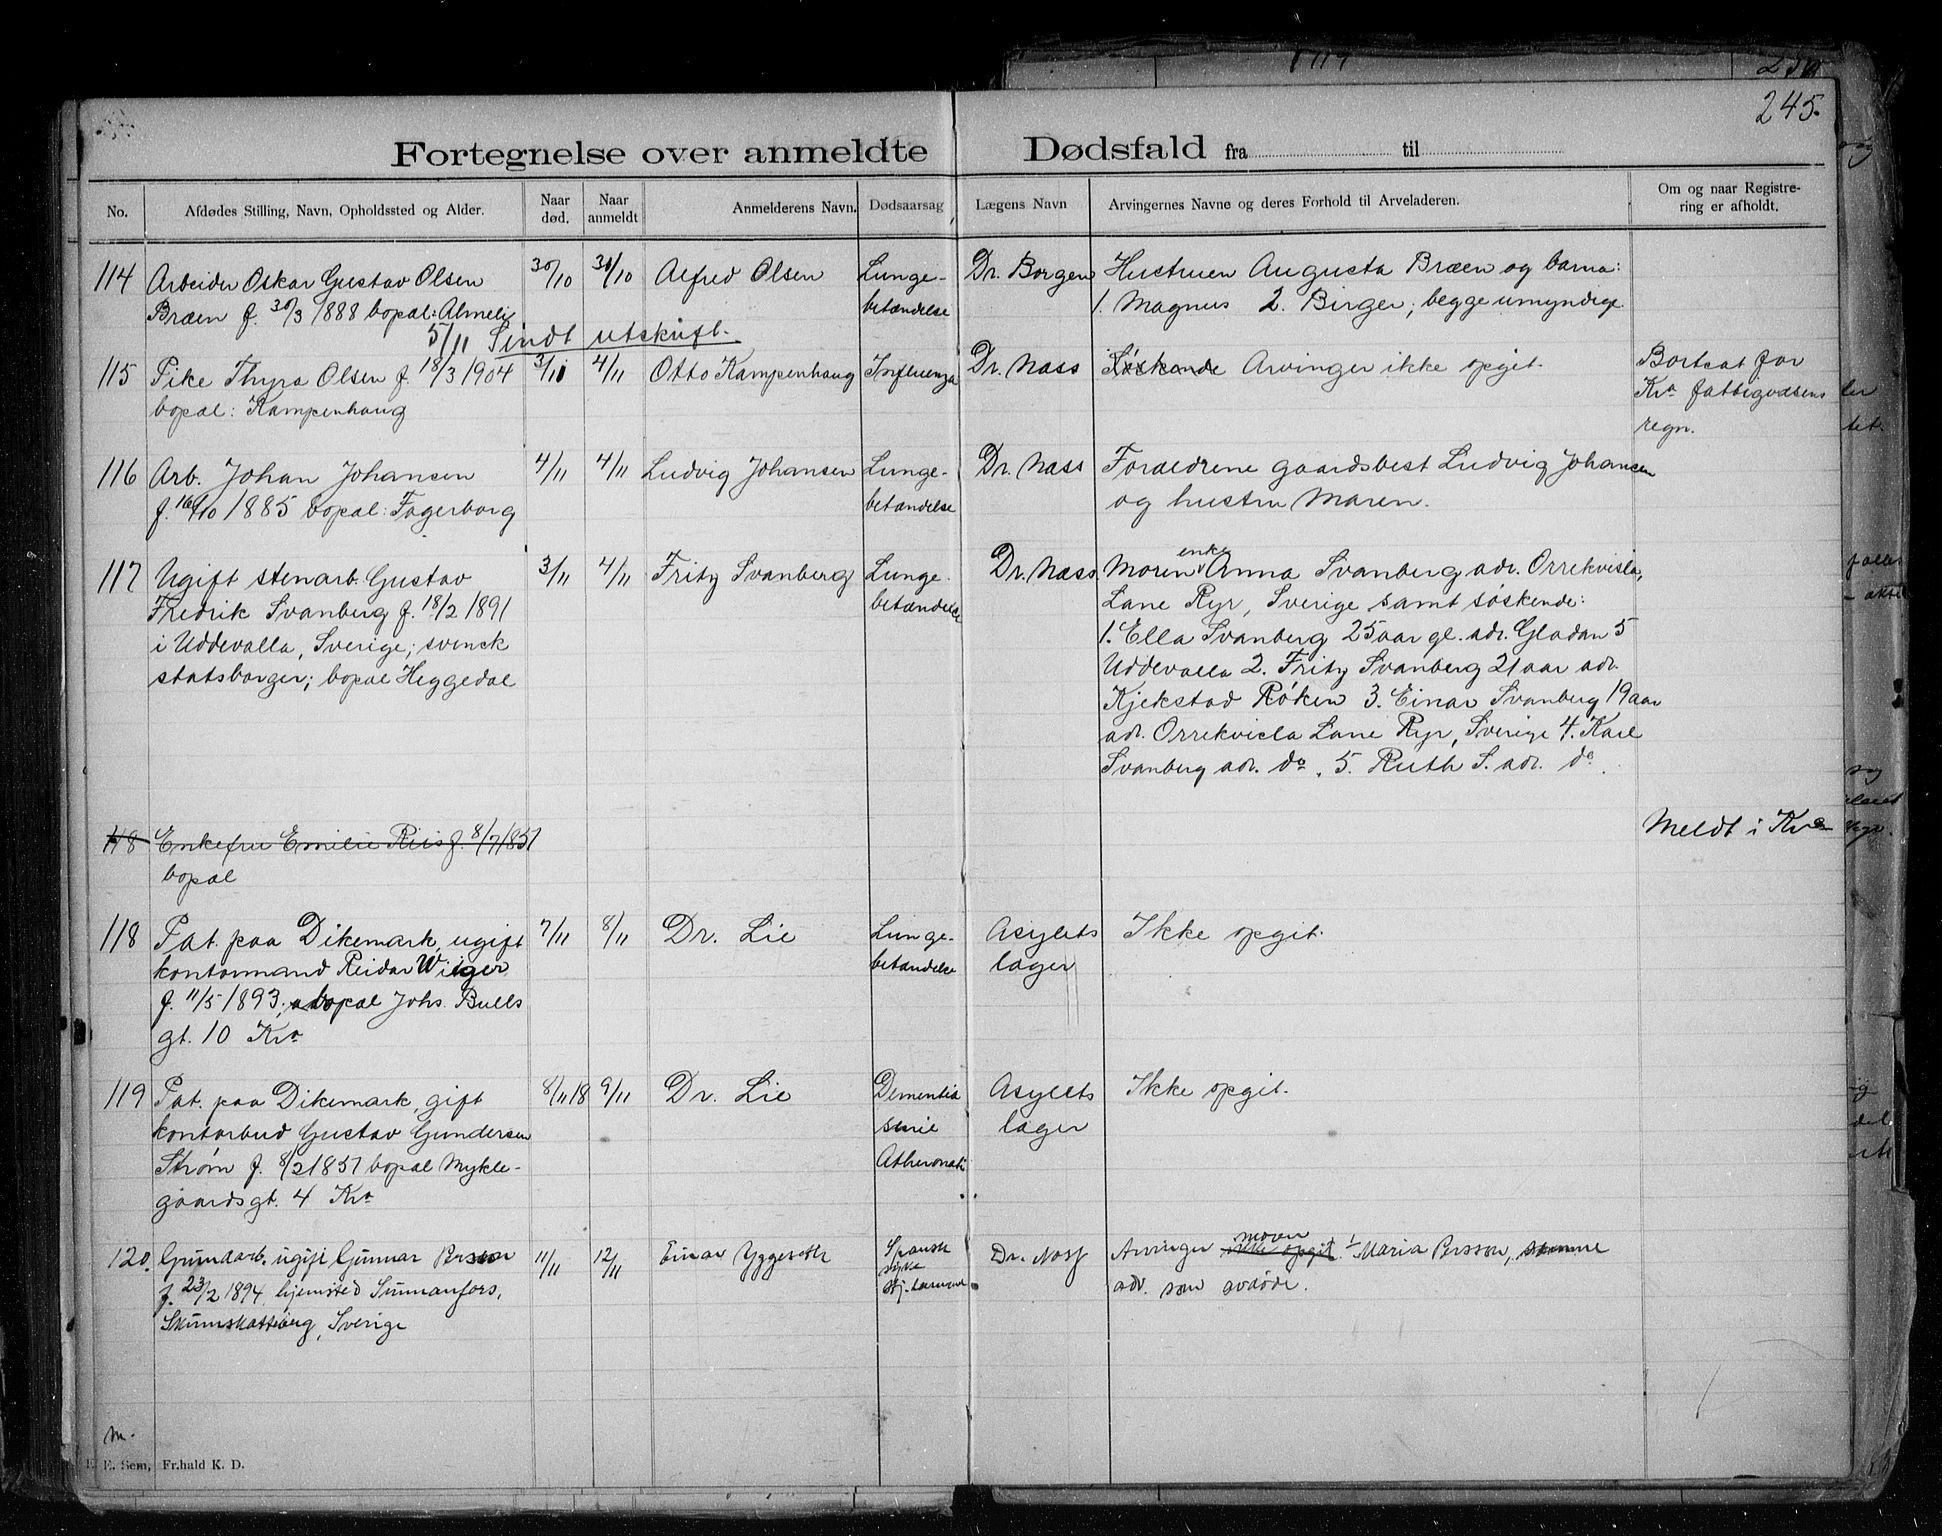 245.
Fortegnelse over anmeldte Dødsfald fra til
No.
Afdødes Stilling, Navn, Opholdssted og Alder.
Naar død.
Naar anmeldt
Anmelderens Navn.
Dødsaarsag
Lægens Navn
Arvingernes Navne og deres Forhold til Arveladeren.
Om og naar Registre-
ring er afholdt.
114 Arbeider Oskar Gustav Olsen 30/10 31/10 Alfred Olsen Lunge- Dr. Borgen Hustruen Augusta Bræen og barna:
Bræen f. 30/3 1888 bopæl: Almeli betændelse 1. Magnus 2. Birger; begge umyndige
5/11 Sendt utskrift.
115 Pike Thyra Olsen f. 18/3 1904 3/11 4/11 Otto Kampenhaug Influenza Dr. Næss Søskende Arvinger ikke opgit. Bortsat for
bopæl: Kampenhaug Kra fattigvæsens
regn.
116 Arb. Johan Johansen 4/11 4/11 Ludvig Johansen Lunge- Dr. Næss Forældrene gaardsbest Ludvig Johansen
f. 16/10 1885 bopæl: Fagerborg betændelse og hustru Maren.
117 Ugift stenarb. Gustav 3/11 4/11 Fritz Svanberg Lunge- Dr. Næss. Moren enke Anna Svanberg adr. Orrekvisla,
Fredrik Svanberg f. 18/2 1891 betændelse Lane Ryr, Sverige samt søskende:
i Uddevalla, Sverige; svensk 1. Ella Svanberg 25 aar gl. adr. Gladan 5
statsborger; bopæl Heggedal Uddevalla 2. Fritz Svanberg 21 aar adr.
Kjekstad Røken 3. Einar Svanberg 19 aar
adr. Orrekvisla Lane Ryr, Sverige 4. Karl
Svanberg adr. do. 5. Ruth S. adr. do.
118 Enkefru Emilie Riis f. 8/7 1851 Meldt i Kra
bopæl
118 Pat. paa Dikemark, ugift 7/11 8/11 Dr. Lie Lunge- Asylets Ikke opgit.
kontormand Reidar Wiiger betændelse læger
f. 11/5 1893; bopæl Johs. Bulls
gt. 10 Kra
119 Pat. paa Dikemark, gift 8/11 18 9/11 Dr. Lie Dementia Asylets Ikke opgit.
kontorbud Gustav Gundersen læger
Strøm f. 8/2 1851 bopæl Mykle-
gaardsgt. 4 Kra
120. Grundarb. ugift Gunnar Persson 11/11 12/11 Einar Yggeseth Spansk Dr. Næss Arvinger ikke opgit. moren 1/ Maria Persson, samme
f. 23/2 1894 hjemsted Sunnanfors, syke adr. som avdøde.
Skinnskatteberg, Sverige
m.
E. Sem, Fr.hald K. D.